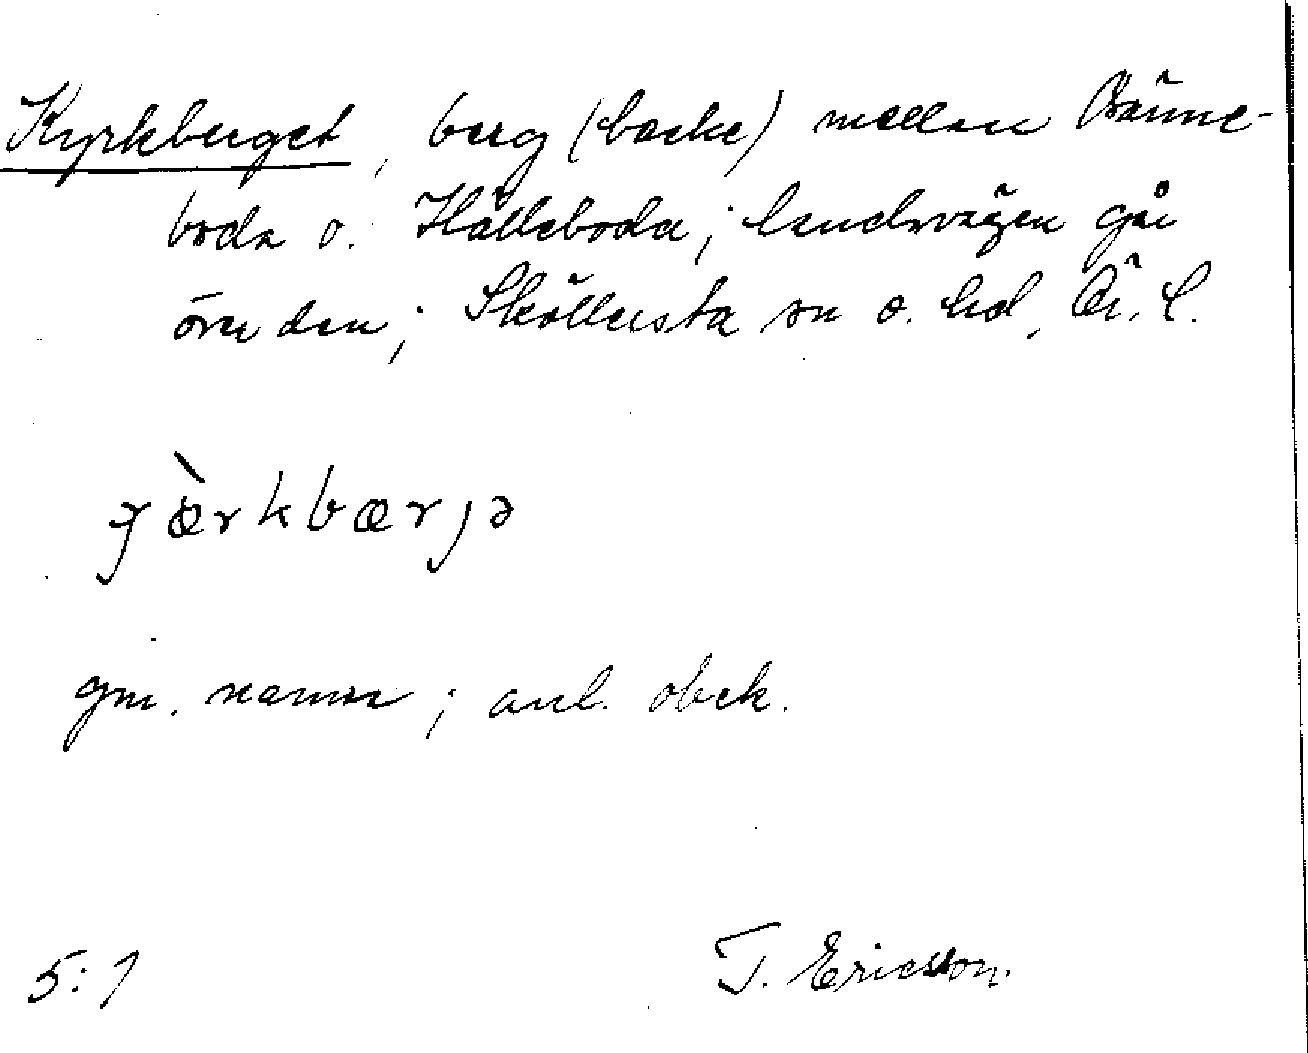 Kyrkberget, berg (backe) mellan Bänne-
boda o. Hälleboda; landsvägen går
över den; Sköllersta sn o. hd, Ör. l.
ɟæ̀rkbærjə
gm. namn; anl. obek.
5:1
T. Ericsson.